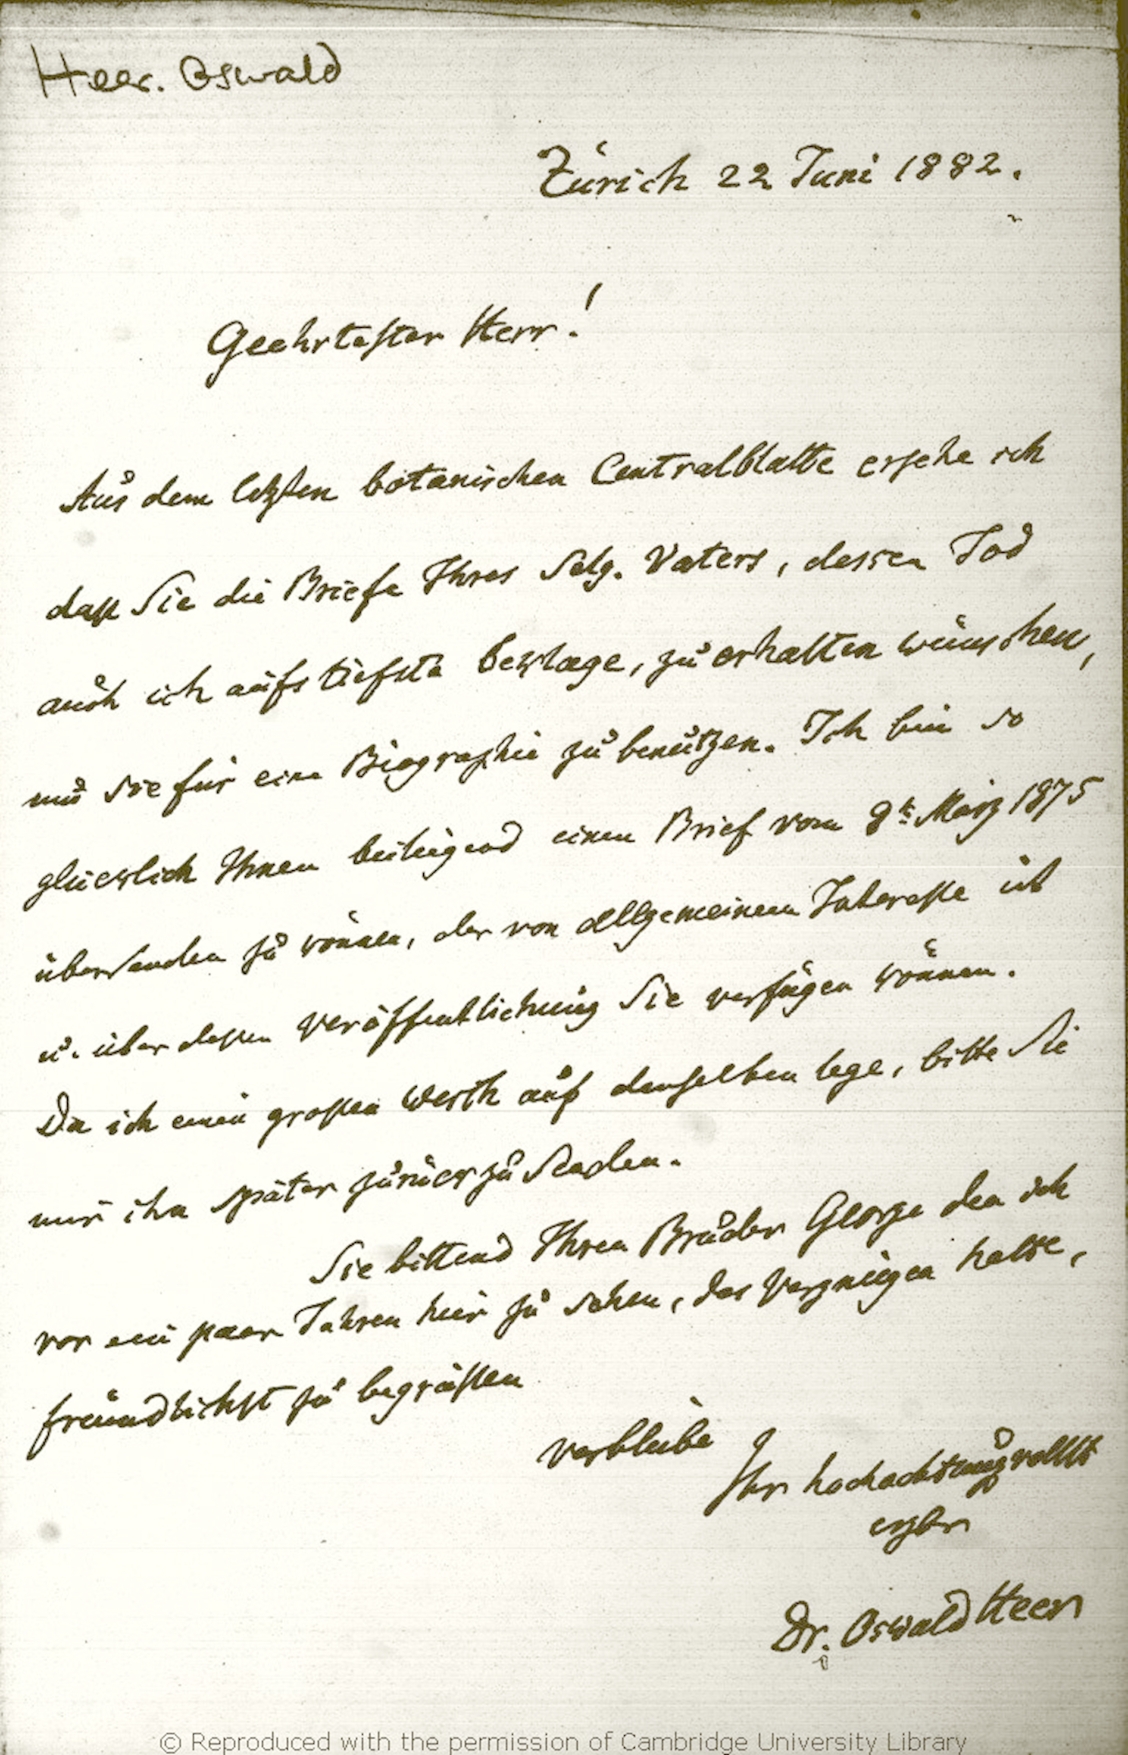 Heer. Oswald
Zürich 22 Juni 1882.
Geehrtester Herr!
Aus dem letzten botanischen Centralblatte ersehe ich
daß Sie die Briefe Ihres Selg. Vaters, dessen Tod
auch ich aufs tiefste beklage, zu erhalten wünschen,
um sie für eine Biographie zu benützen. Ich bin so
glücklich Ihnen beiliegend einen Brief vom 8t. März 1875
übersenden zu können, der von allgemeinem Interesse ist
u. über dessen Veröffentlichung Sie verfügen können.
Da ich einen großen Werth auf denselben lege, bitte Sie
mir ihn später zurückzusenden.
Sie bittend Ihren Bruder George den ich
vor ein paar Jahren hier zu sehen, das Vergnügen hatte,
freundlichst zu begrüßen
verbleibe
Ihr hochachtungsvollst
ergbr
Dr. Oswald Heer
© Reproduced with the permission of Cambridge University Library